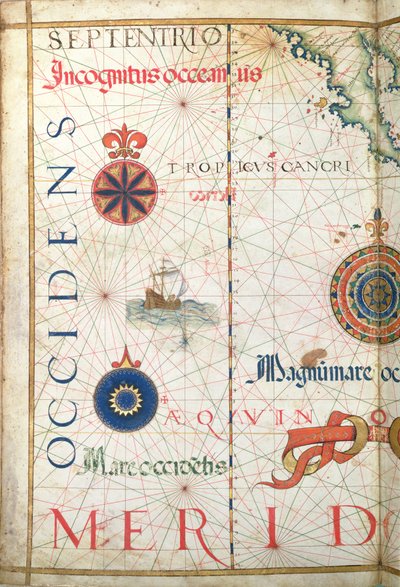 SEPTENTRIO
Incognitus occeanus
OCCIDENS
TROPICVS CANCRI
Magnũ mare oc
ÆQVINO
Mare occidẽtis
MERIDO